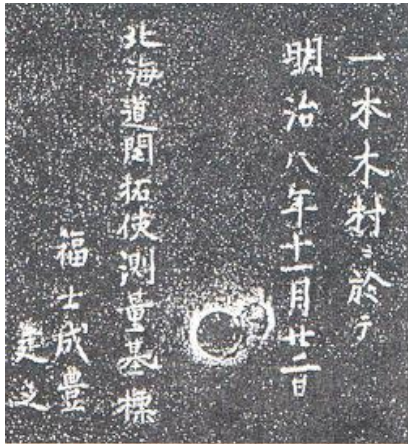 一本木村ニ於テ
明治八年十一月廿二日
北海道開拓使測量基標
福士成豊
建之